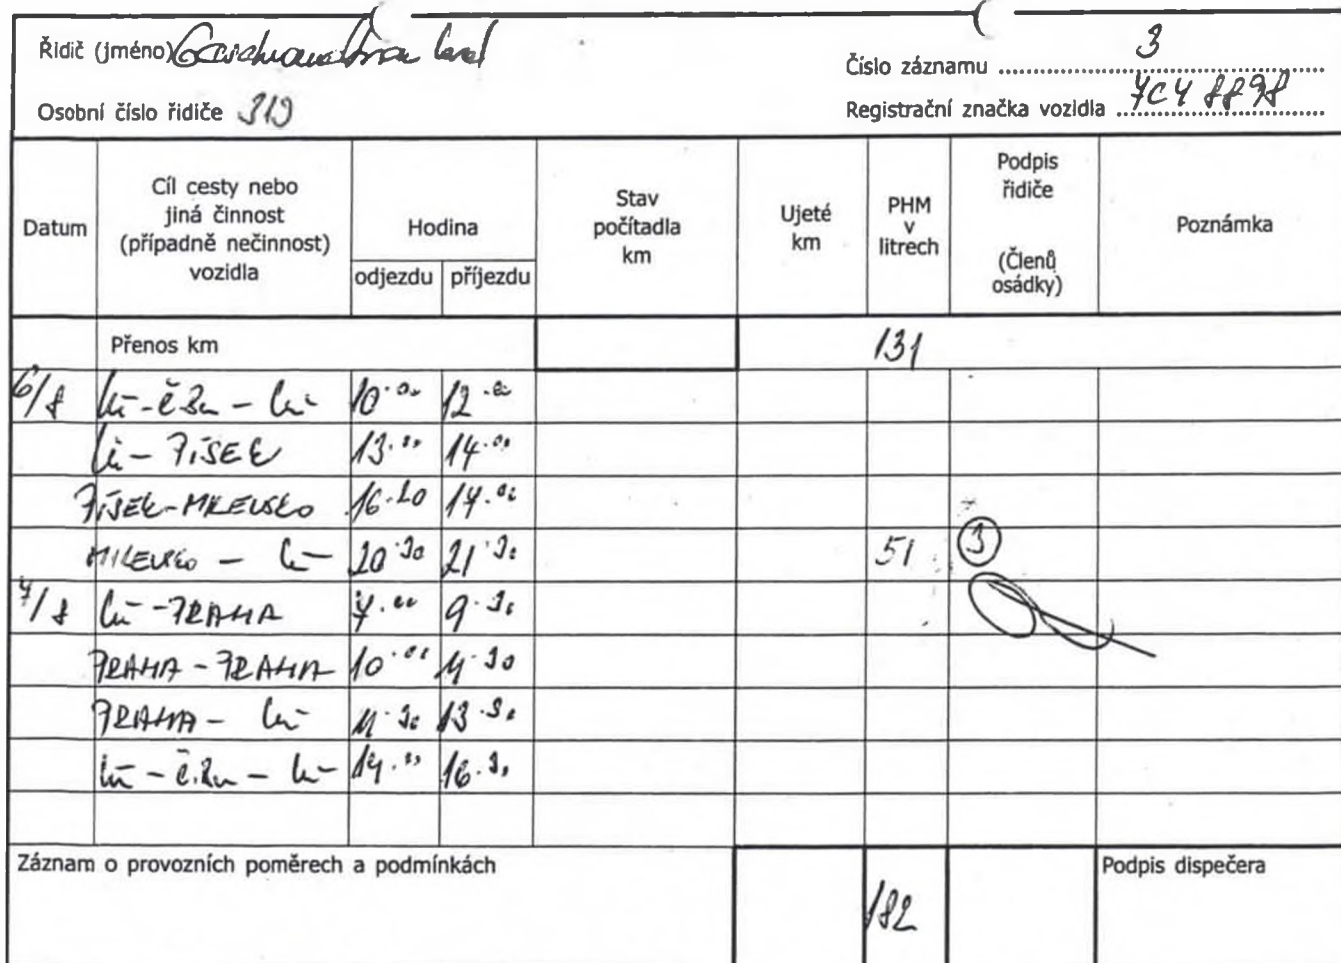 Řidič (jméno)
Číslo záznamu 3
Osobní číslo řidiče 319
Registrační značka vozidla 7C4 8898
Datum
Cíl cesty nebo
jiná činnost
(případně nečinnost)
vozidla
Hodina
odjezdu příjezdu
Stav
počítadla
km
Ujeté
km
PHM
v
litrech
Podpis
řidiče
(Členů
osádky)
Poznámka
Přenos km 131
6/8 10.00 12.00
PÍSEK 13.00 14.00
PÍSEK-MILEVSKO 16.20 17.00
MILEVSKO - 20.30 21.30 51 3
7/8 - PRAHA 7.00 9.30
PRAHA - PRAHA 10.00 11.30
PRAHA - 11.30 13.30
14.30 16.30
Záznam o provozních poměrech a podmínkách
182
Podpis dispečera